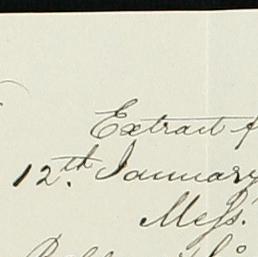 Extract f
12th. January
Mess.